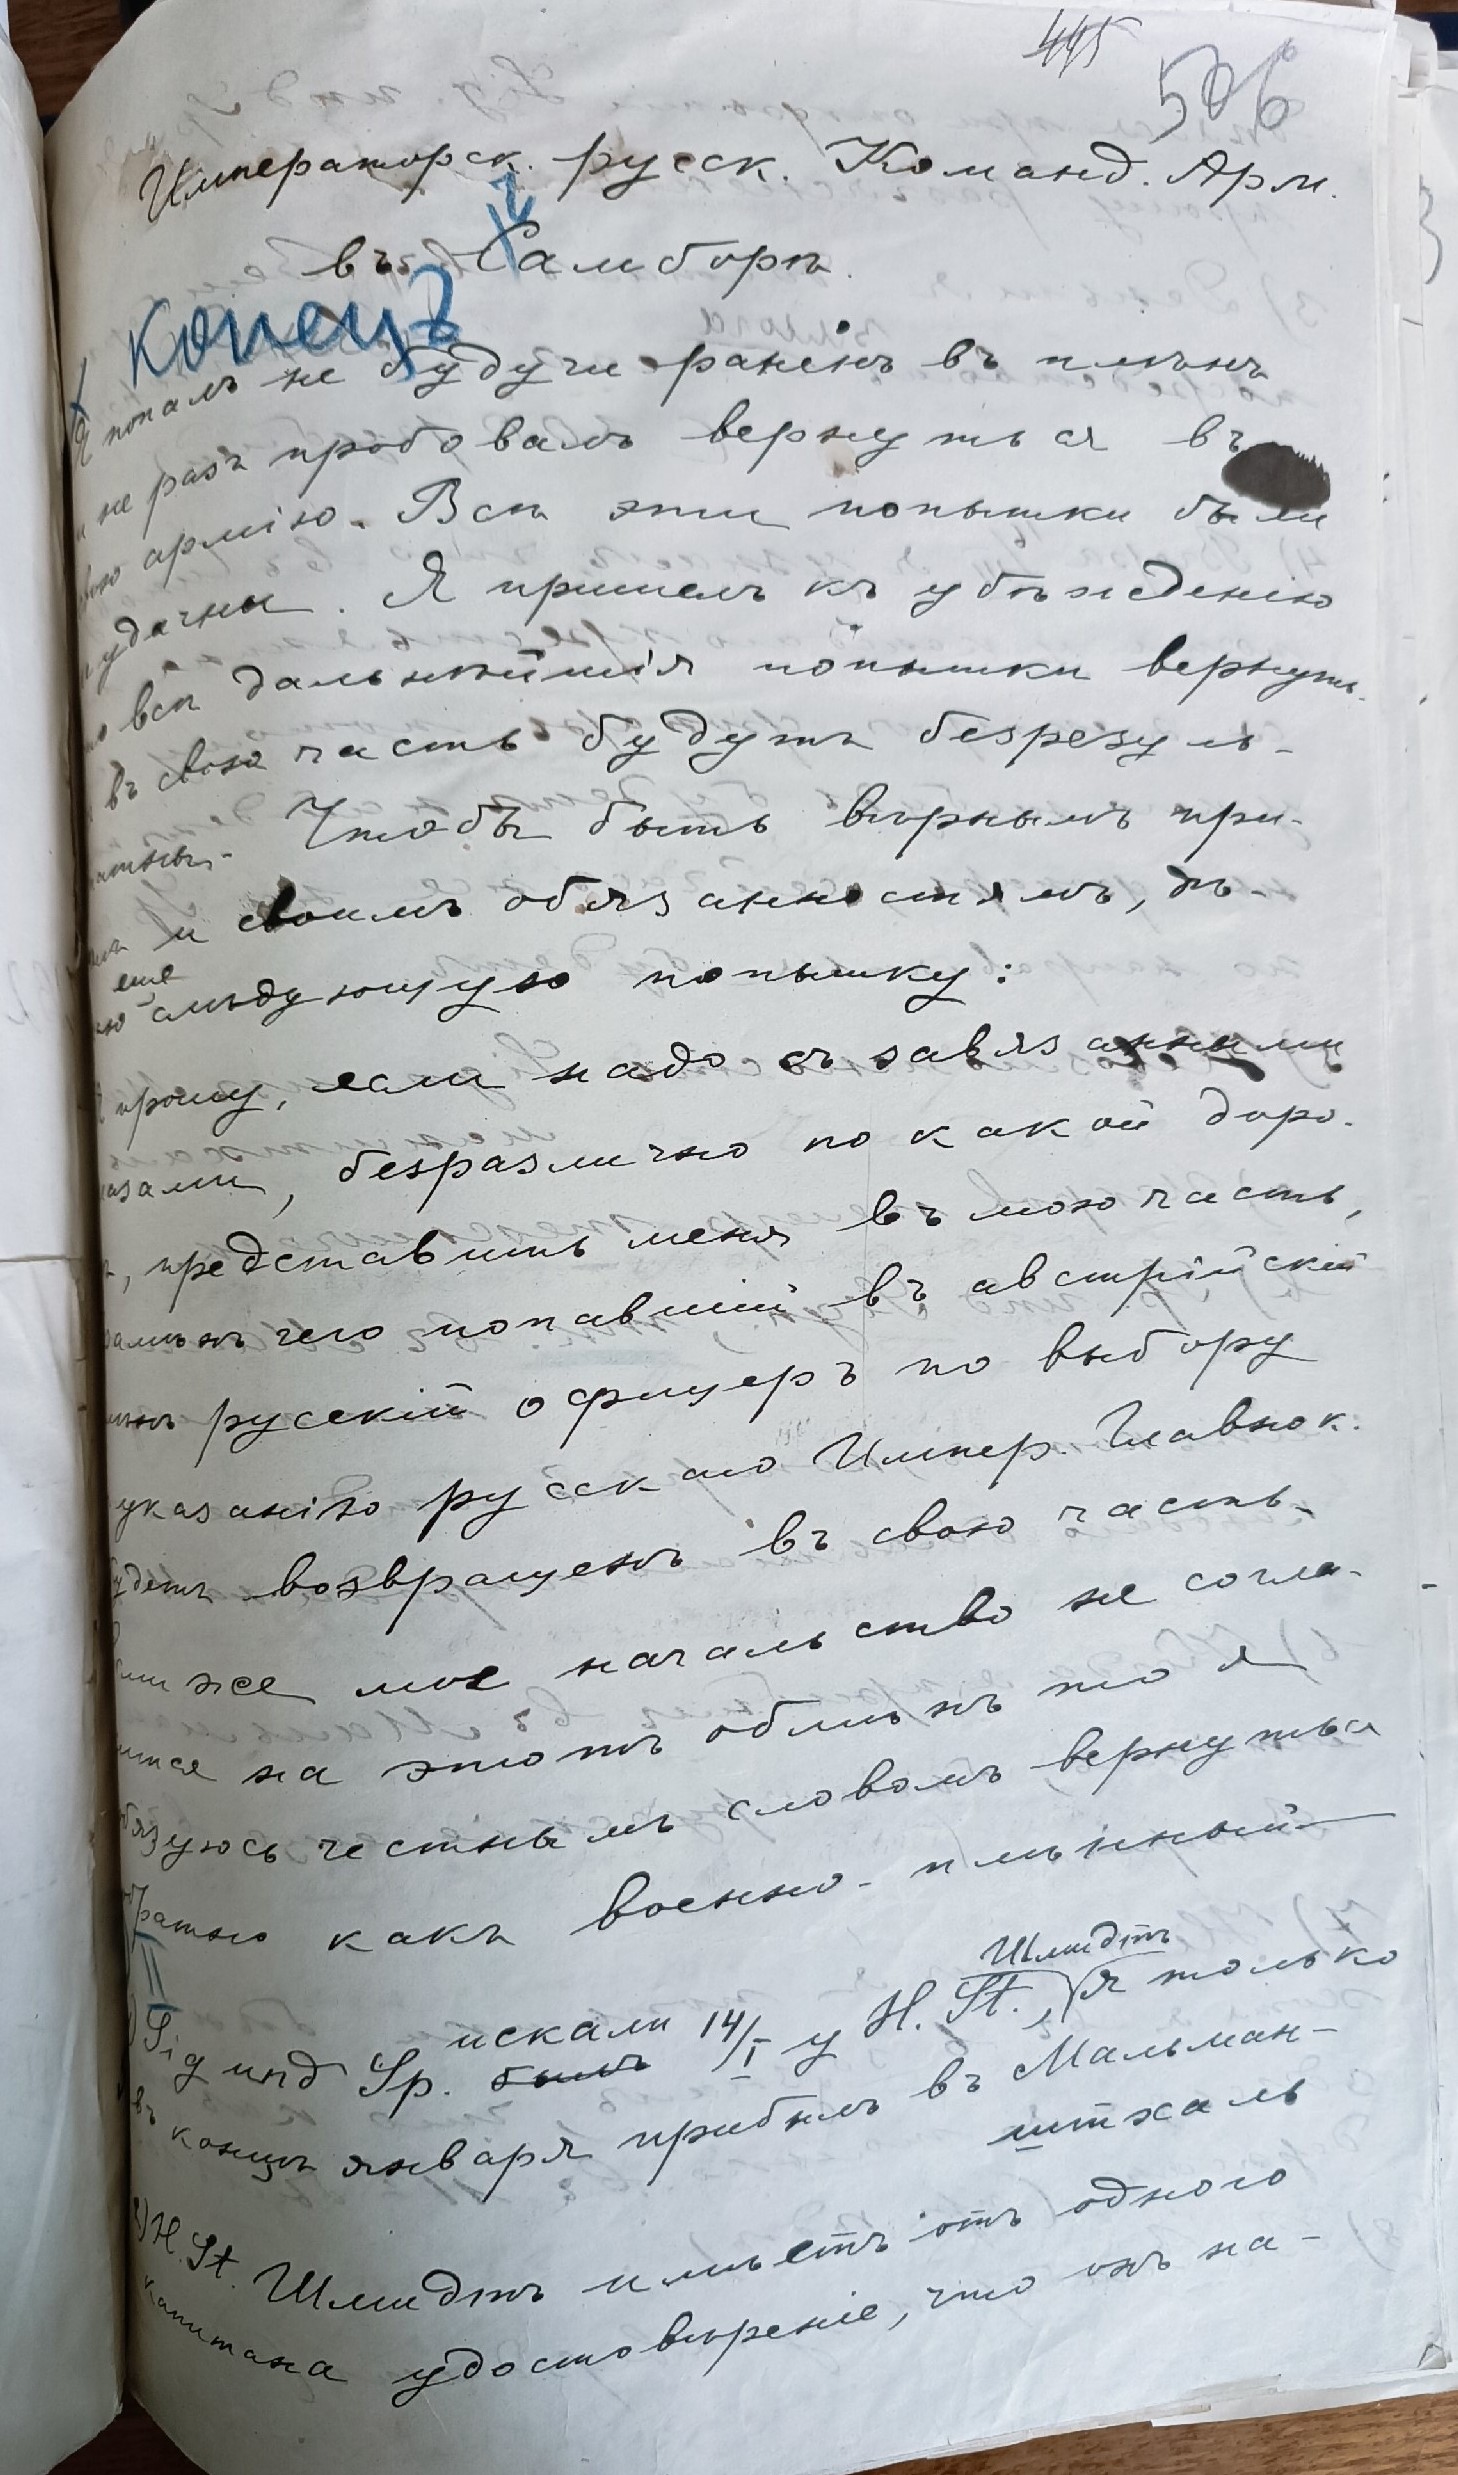 445
506
Императорск. русск. Команд. Арм.
въ Самборѣ.
Конецъ
Я попалъ не будучи раненъ въ плѣнъ
и не разъ пробовалъ вернуться въ
свою армію. Всѣ эти попытки были
удачны. Я пришелъ къ убѣжденію
всѣ дальнѣйшія попытки вернуть-
въ свою часть будутъ безрезуль-
татны. Чтобы быть вѣрнымъ при-
и своимъ обязанностямъ, дѣ-
еще
слѣдующую попытку:
прошу, если надо съ завязанными
глазами, безразлично по какой доро-
, представить меня въ мою часть,
взамѣнъ чего попавшій въ австрійскій
плѣнъ русскій офицеръ по выбору
указанію русскаго Импер. Главнок.
будетъ возвращенъ въ свою часть.
Если же мое начальство не согла-
сится на этотъ обмѣнъ то я
обязуюсь честнымъ словомъ вернуться
обратно какъ военно-плѣнный
Шмидтъ
искали
Sig und Sp. былъ 14/I у H. St., (я только
въ концѣ января прибылъ въ Мальман-
штхаль
2) H. St. Шмидтъ имѣетъ отъ одного
капитана удостовѣреніе, что онъ на-